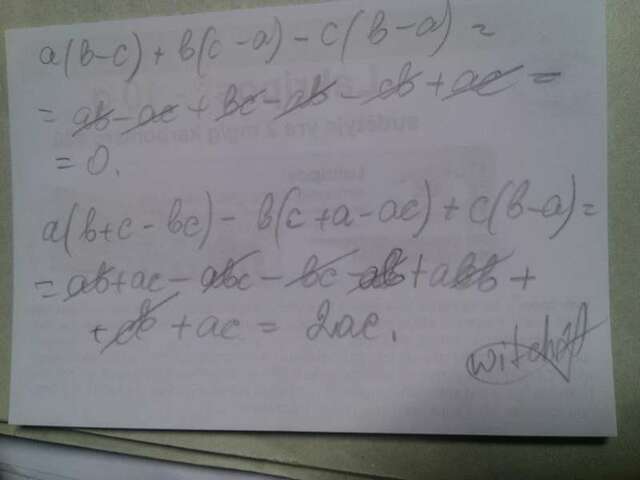 a(b-c)+b(c-a)-c(b-a)=
= ab-ac+bc-ab-cb+ac=
=0.
a(b+c-bc)-b(c+a-ac)+c(b-a)=
= ab+ac-abc-bc-ab+abc+
+ac = 2ac.